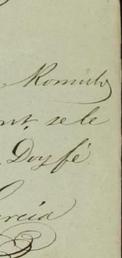 Romulo
ont. se le
Doy fé
Garcia